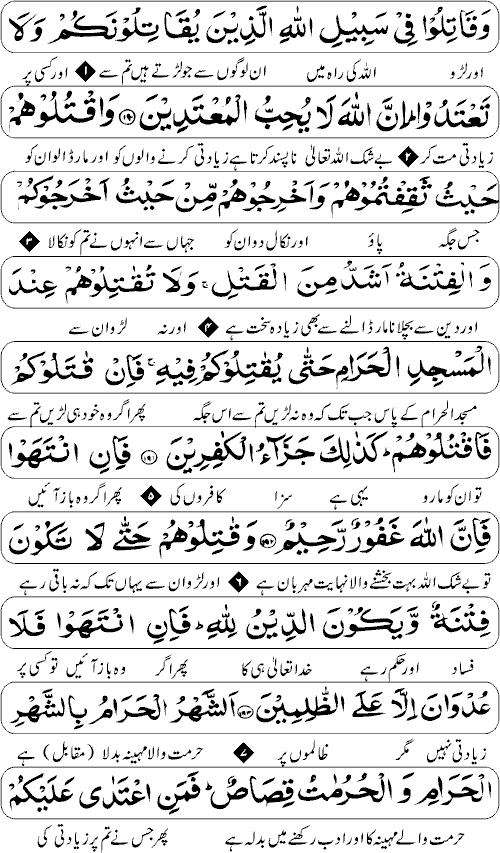 وَقَاتِلُوْا فِيْ سَبِيْلِ اللهِ الَّذِيْنَ يُقَاتِلُوْنَكُمْ وَلَا
اور لڑو اللہ کی راہ میں ان لوگوں سے جو لڑتے ہیں تم سے ۱ اور کسی پر
تَعْتَدُوْا اِنَّ اللهَ لَا يُحِبُّ الْمُعْتَدِيْنَ ﴿۱۹۰﴾ وَاقْتُلُوْهُمْ
زیادتی مت کر ۲ بے شک اللہ تعالیٰ ناپسند کرتا ہے زیادتی کرنے والوں کو اور مار ڈالو ان کو
حَيْثُ ثَقِفْتُمُوْهُمْ وَاَخْرِجُوْهُمْ مِّنْ حَيْثُ اَخْرَجُوْكُمْ
جس جگہ پاؤ اور نکال دو ان کو جہاں سے انہوں نے تم کو نکالا ۳
وَالْفِتْنَةُ اَشَدُّ مِنَ الْقَتْلِ ۚ وَلَا تُقٰتِلُوْهُمْ عِنْدَ
اور دین سے بچلانا مار ڈالنے سے بھی زیادہ سخت ہے ۴ اور نہ لڑو ان سے
الْمَسْجِدِ الْحَرَامِ حَتّٰى يُقٰتِلُوْكُمْ فِيْهِ ۚ فَاِنْ قٰتَلُوْكُمْ
مسجد الحرام کے پاس جب تک کہ وہ نہ لڑیں تم سے اس جگہ پھر اگر وہ خود ہی لڑیں تم سے
فَاقْتُلُوْهُمْ ؕ كَذٰلِكَ جَزَآءُ الْكٰفِرِيْنَ ﴿۱۹۱﴾ فَاِنِ انْتَهَوْا
تو ان کو مارو یہی ہے سزا کافروں کی ۵ پھر اگر وہ باز آئیں
فَاِنَّ اللهَ غَفُوْرٌ رَّحِيْمٌ ﴿۱۹۲﴾ وَقٰتِلُوْهُمْ حَتّٰى لَا تَكُوْنَ
تو بے شک اللہ بہت بخشنے والا نہایت مہربان ہے ۶ اور لڑو ان سے یہاں تک کہ نہ باقی رہے
فِتْنَةٌ وَّيَكُوْنَ الدِّيْنُ لِلّٰهِ ؕ فَاِنِ انْتَهَوْا فَلَا
فساد اور حکم رہے خدا تعالیٰ ہی کا پھر اگر وہ باز آئیں تو کسی پر
عُدْوَانَ اِلَّا عَلَى الظّٰلِمِيْنَ ﴿۱۹۳﴾ اَلشَّهْرُ الْحَرَامُ بِالشَّهْرِ
زیادتی نہیں مگر ظالموں پر ۷ حرمت والا مہینہ بدلا (مقابل) ہے
الْحَرَامِ وَالْحُرُمٰتُ قِصَاصٌ ؕ فَمَنِ اعْتَدٰى عَلَيْكُمْ
حرمت والے مہینہ کا اور ادب رکھنے میں بدلہ ہے پھر جس نے تم پر زیادتی کی